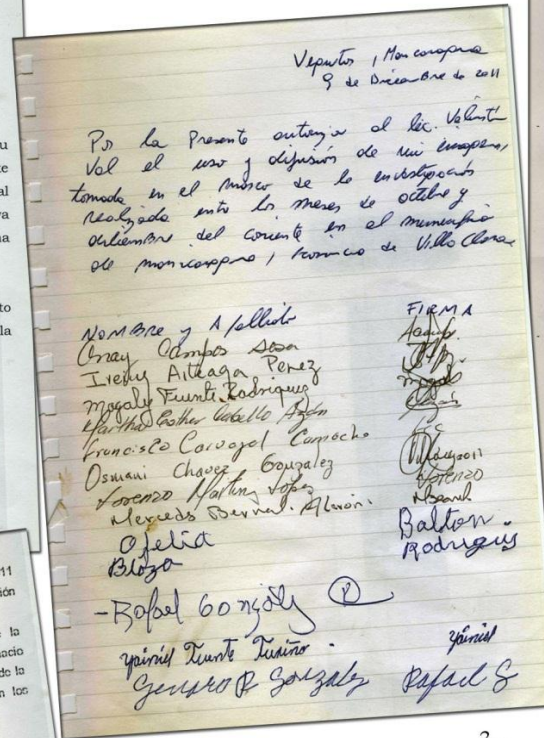 u
te
al
va
na
to
la
Vegueitas, Manicaragua
9 de Diciembre de 2011
Por la Presente autorizo al Lic. Valentín
Val el uso y difusión de mi imagen,
tomada en el marco de la investigación
realizada entre los meses de octubre y
diciembre del corriente en el municipio
de Manicaragua, Provincia de Villa Clara
Nombre y Apellido FIRMA
Campos Sosa
Arteaga Perez
Magaly Fuente Rodriguez
Martha Esther Cabello
Francisco Carvajal Camacho
Osmani Chavez Gonzalez
Lorenzo Martinez Lopez Lorenzo
Mercedes Bernal Alarcón.
Ofelia
Balton.
Rodriguez
-Rafael González R
Yainiel Fuente Turiño. Yainiel
Genaro R Gonzalez Rafael G
11
ión
la
acio
de la
n los
3